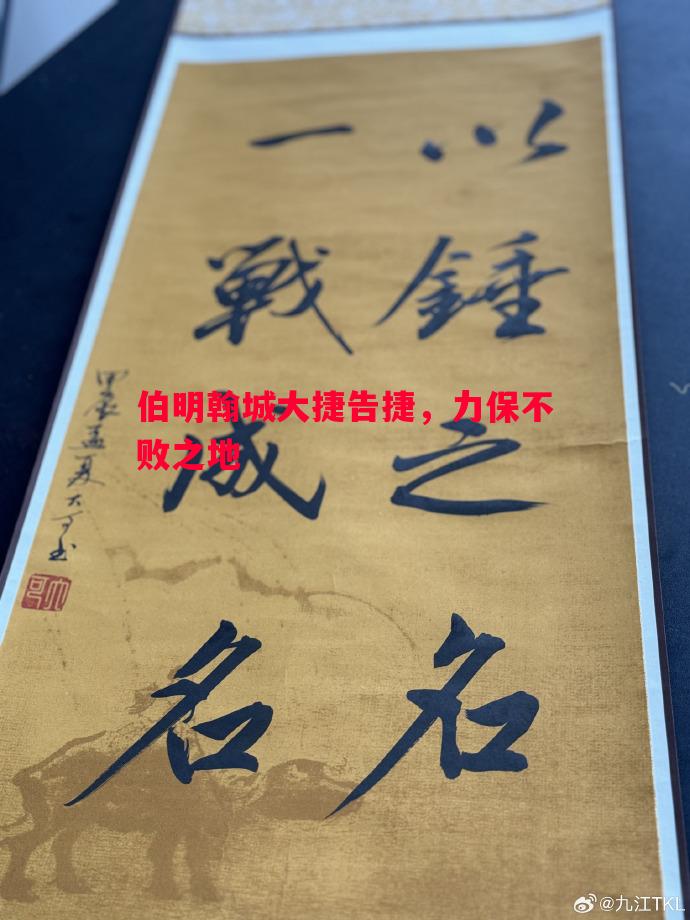 以錘之名
一戰成名
甲辰孟夏大可书
伯明翰城大捷告捷，力保不
败之地
@九江TKL